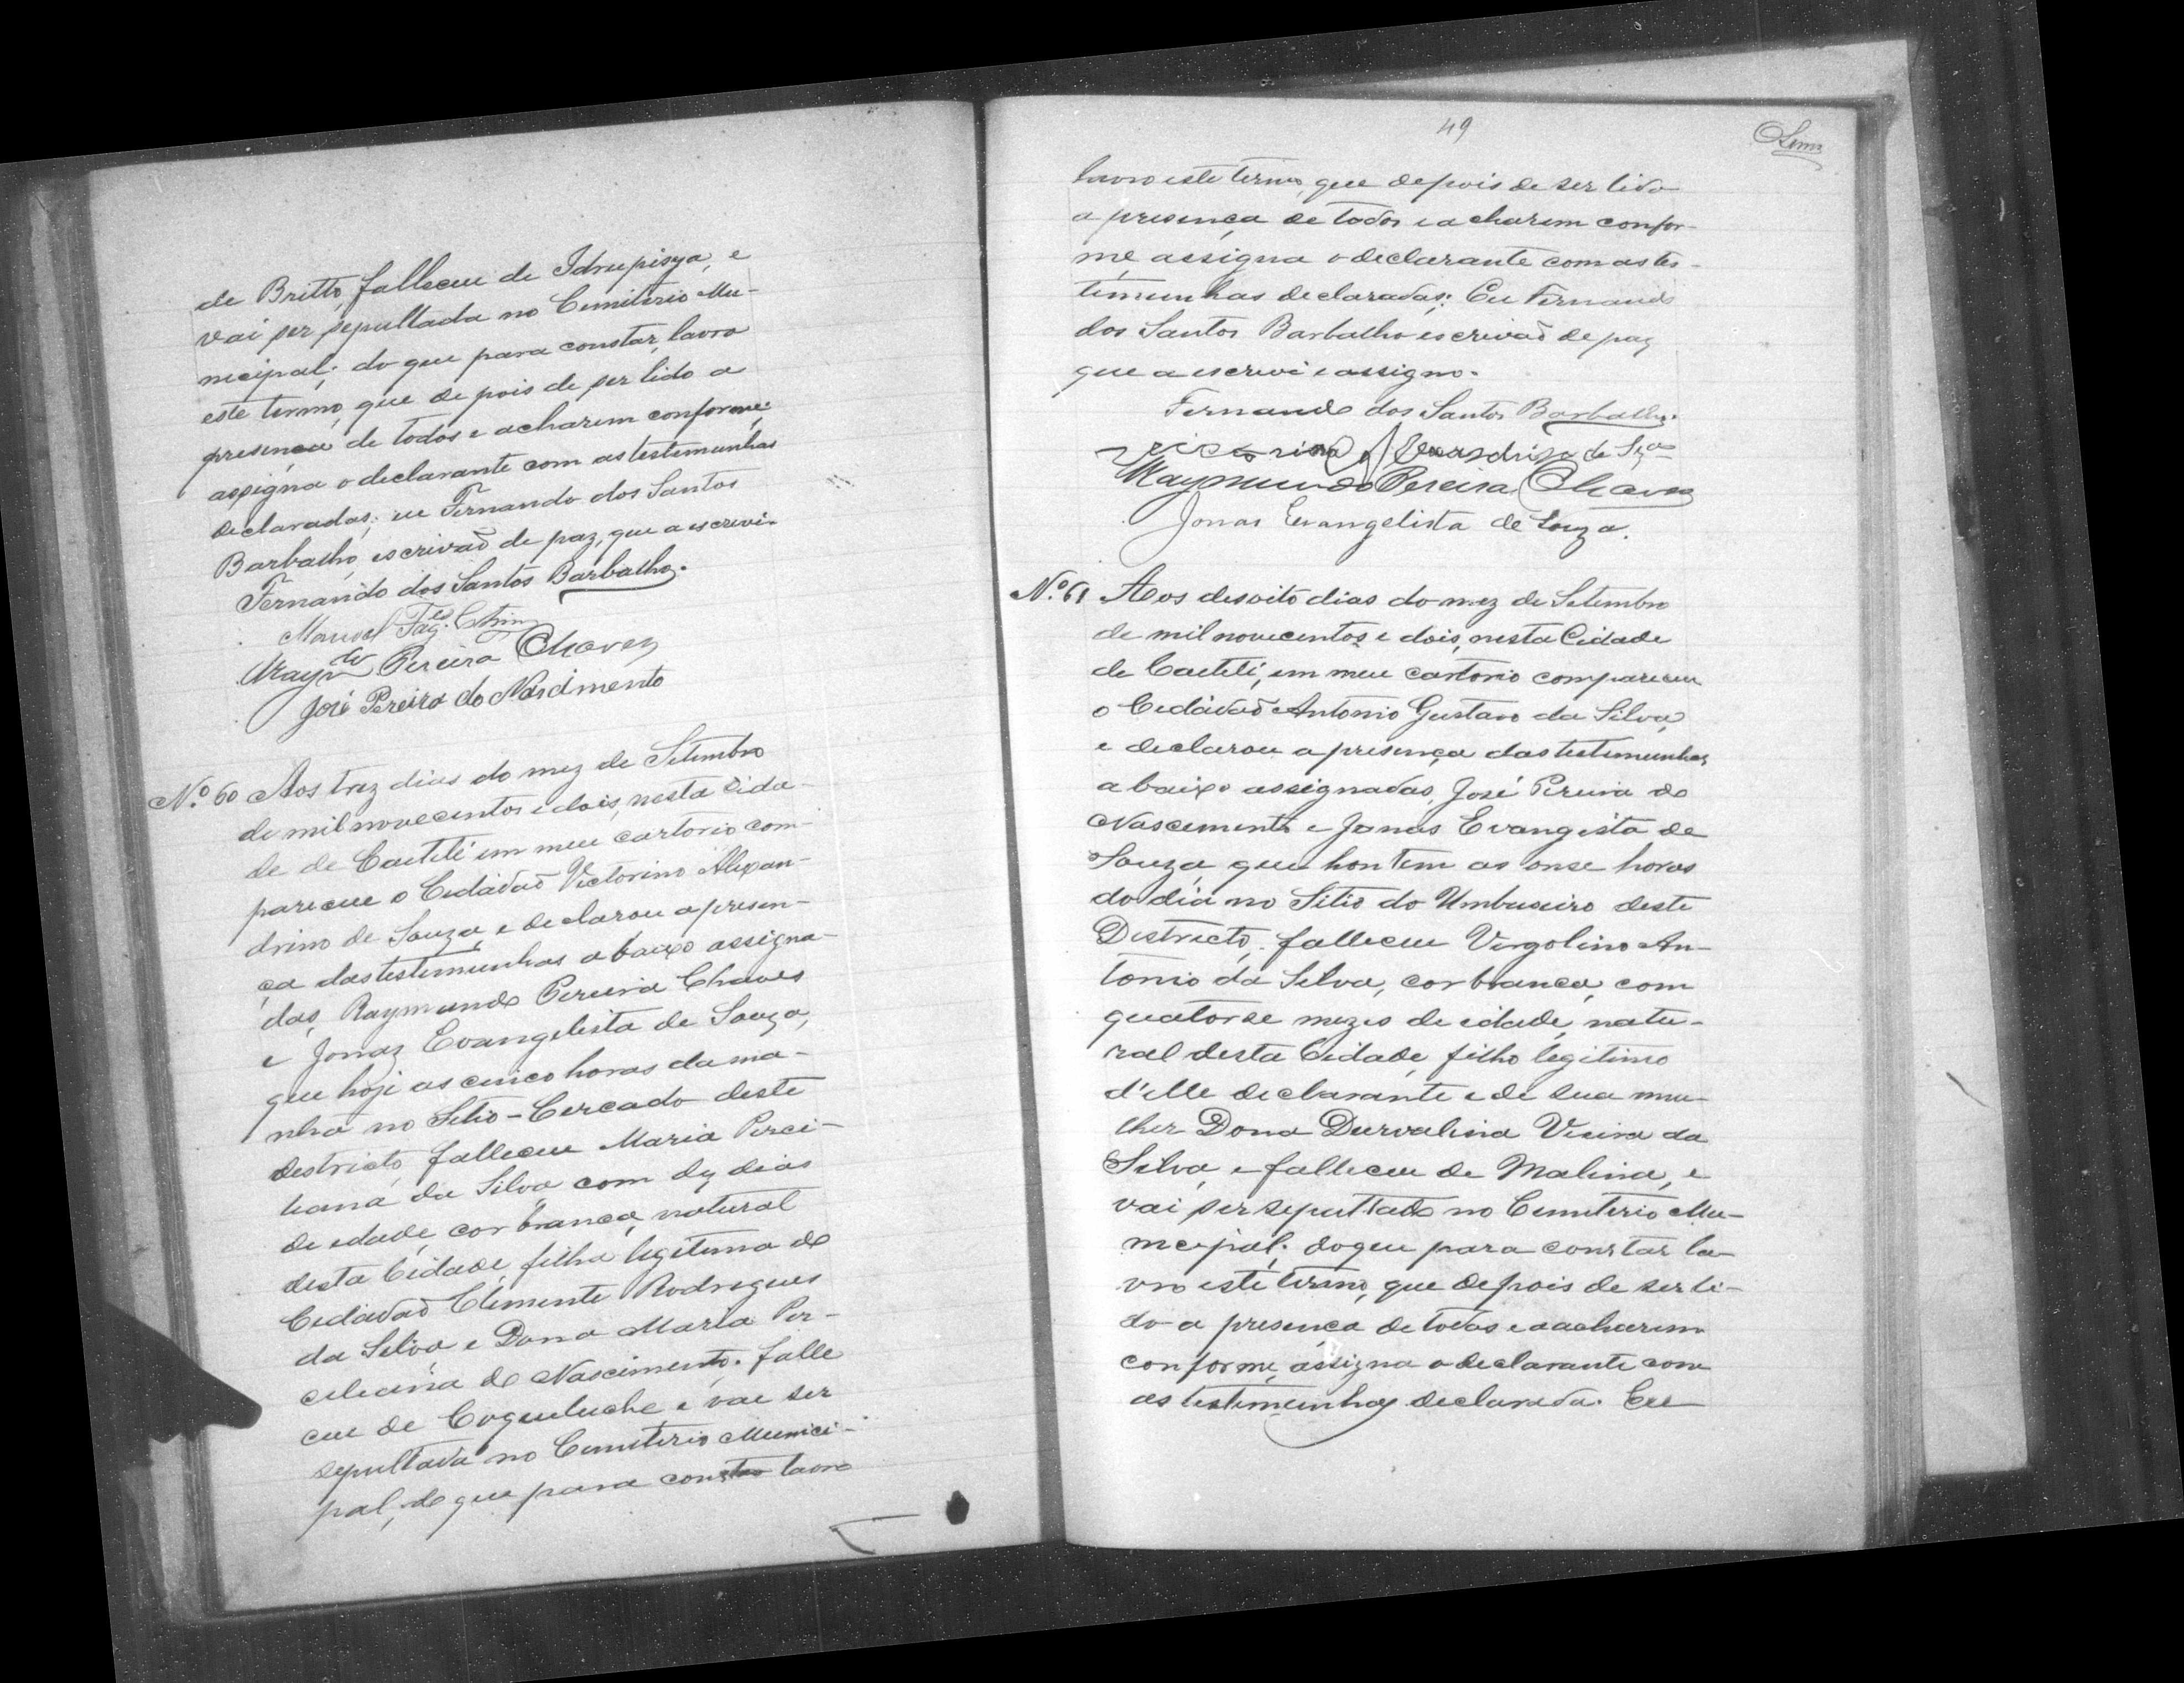 de Britto, falleceu de Idrupisya, e
vai ser sepultada no Cemiterio Mu-
nicipal; do que para constar, lavro
este termo, que depois de ser lido a
presença de todos e acharem conforme;
assigna o declarante com as testemunhas
declaradas; eu Fernando dos Santos
Barbalho, escrivaõ de paz, que a escrevi.
Fernando dos Santos Barbalho.
Manoel
Raymdo Pereira Chaves
José Pereira do Nascimento
N.º 60 Aos trez dias do mez de Setembro
de mil novecentos e dois, nesta Cida-
de de Caeteté em meu cartorio com-
pareceu o Cidadaõ Victorino Alexan-
drino de Souza, e declarou a presen-
ça das testemunhas abaixo assigna-
das, Raymundo Pereira Chaves
e Jonaz Evangelista de Souza,
que hoje as cinco horas da ma-
nhã no Sitio-Cercado deste
destricto, falleceu Maria Perci-
liana da Silva com dez dias
de edade, cor branca, natural
desta Cidade, filha legitima do
Cidadaõ Clemente Rodrigues
da Silva e Dona Maria Per-
ciliana do Nascimento. falle
ceu de Coqueluche e vae ser
sepultada no Cemiterio Munici-
pal, do que para constar lavro
49
lavro este termo, que depois de ser lido
a presença de todos e acharem confor-
me, assigna o declarante com as tes-
temunhas declaradas; Eu Fernando
dos Santos Barbalho escrivaõ de paz
que a escrevi e assigno.
Fernando dos Santos Barbalho.
Victorino Alexandrino de Sza
Raymundo Pereira Chaves
Jonas Evangelista de Souza.
N.º 61 Aos desoito dias do mez de Setembro
de mil novecentos e dois, nesta Cidade
de Caeteté, em meu cartorio compareceu
o Cidadaõ Antonio Gustavo da Silva,
e declarou a presença das testemunhas
abaixo assignadas, José Pereira do
Nascimento e Jonas Evangista de
Souza, que hontem as onse horas
do dia no Sitio do Umbuseiro deste
Destricto, falleceu Vergolino An-
tonio da Silva, cor branca, com
quatorse mezes de edade, natu-
ral desta Cidade, filho legitimo
d'elle declarante e de sua mu-
lher Dona Durvalina Vieira da
Silva, e falleceu de Malina, e
vai ser sepultado no Cemiterio Mu-
nicipal; do que para constar la-
vro este termo, que depois de ser li-
do a presença de todos e acharem
conforme, assigna o declarante com
as testemunhas declarada. Eu